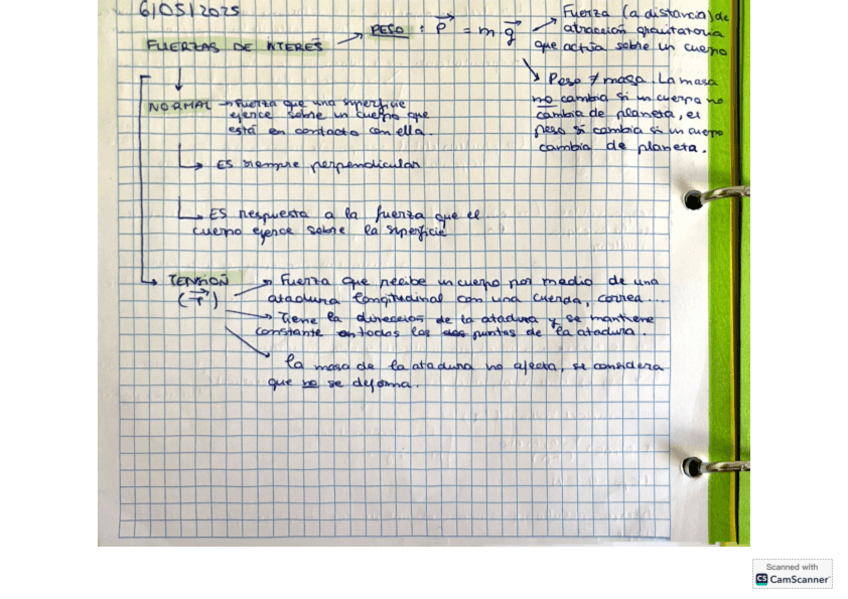 6/05/2025
FUERZAS DE INTERÉS
PESO : P = m · g
Fuerza (a distancia) de
atracción gravitatoria
que actúa sobre un cuerpo
Peso ≠ masa. La masa
no cambia si un cuerpo no
cambia de planeta, el
peso sí cambia si un cuerpo
cambia de planeta.
NORMAL → Fuerza que una superficie
ejerce sobre un cuerpo que
está en contacto con ella.
↳ ES siempre perpendicular
↳ ES respuesta a la fuerza que el
cuerpo ejerce sobre la superficie
TENSIÓN
(T)
Fuerza que recibe un cuerpo por medio de una
atadura longitudinal con una cuerda, correa...
Tiene la dirección de la atadura y se mantiene
constante en todos los puntos de la atadura.
La masa de la atadura no afecta, se considera
que no se deforma.
Scanned with
CS CamScanner